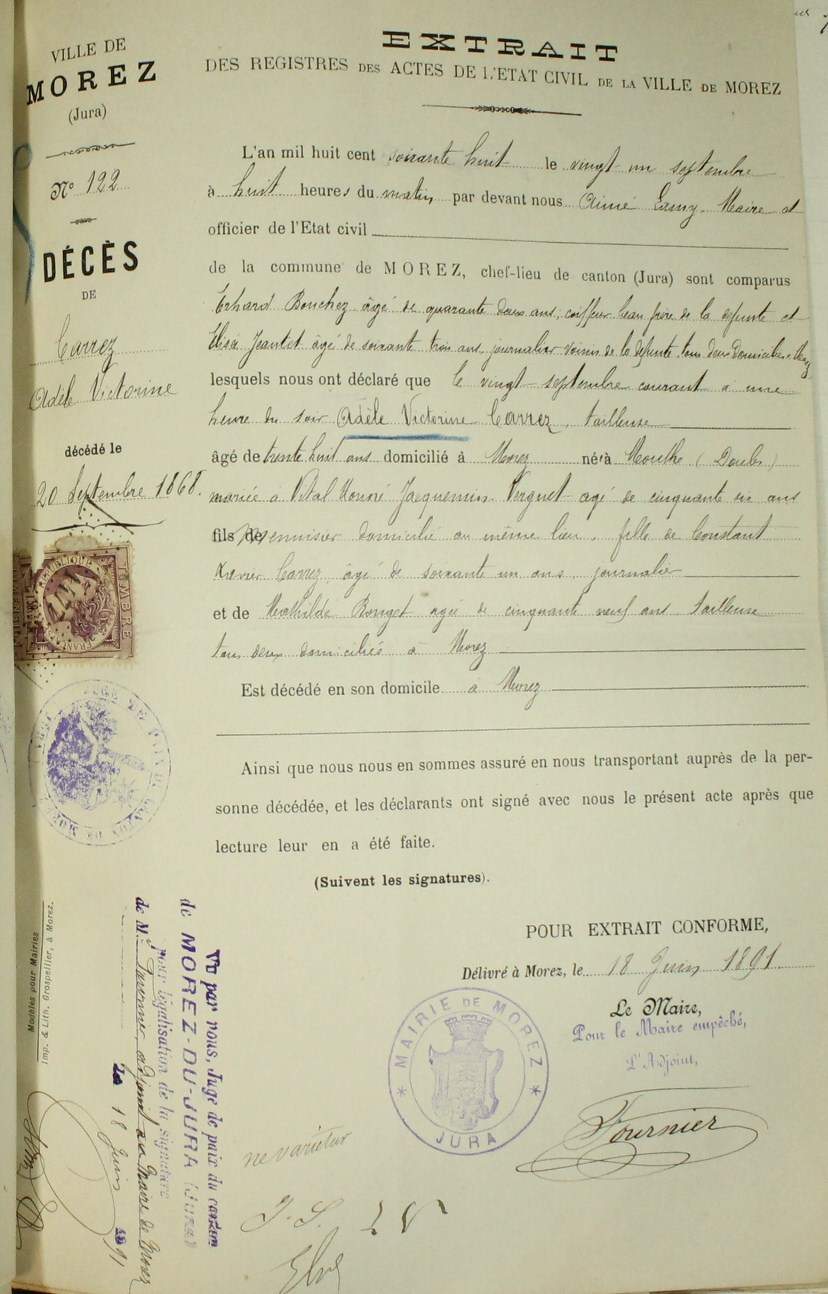 VILLE DE
MOREZ
(Jura)
Nº 122
DÉCÈS
DE
Carrez
Adèle Victorine
décédé le
20 Septembre 1868.
EXTRAIT
DES REGISTRES DES ACTES DE L'ETAT CIVIL DE LA VILLE DE MOREZ
L'an mil huit cent soixante huit le vingt un septembre
à huit heures du matin par devant nous Aimé Lamy, Maire et
officier de l'Etat civil
de la commune de MOREZ, chef-lieu de canton (Jura) sont comparus
Erhard Bouchez âgé de quarante deux ans, coiffeur beau frère de la défunte et
Elisé Jeantet âgé de soixante trois ans, journalier voisin de la défunte, tous deux domiciliés à Morez
lesquels nous ont déclaré que le vingt septembre courant à une
heure du soir Adèle Victorine Carrez, tailleuse
âgé de trente huit ans domicilié à Morez né à Mouthe (Doubs)
mariée à Vital Honoré Jacquemin Verguet agé de cinquante un ans
fils de menuisier domicilié au même lieu, fille de Constant
Xavier Carrez, âgé de soixante un ans, journalier
et de Mathilde Rouget agée de cinquante neuf ans tailleuse
tous deux domiciliés à Morez
Est décédé en son domicile à Morez
Ainsi que nous nous en sommes assuré en nous transportant auprès de la per-
sonne décédée, et les déclarants ont signé avec nous le présent acte après que
lecture leur en a été faite.
(Suivent les signatures).
POUR EXTRAIT CONFORME,
Délivré à Morez, le 18 Juin 1891
Le Maire,
Pour le Maire empêché,
L'Adjoint,
Fournier
MAIRIE DE MOREZ
JURA
TIMBRE
Vu par nous, Juge de paix du canton
de MOREZ-DU-JURA (Jura)
Pour légalisation de la signature
de Mr Fournier, adjoint au Maire de Morez
18 Juin 1891
Modèles pour Mairies
Imp. & Lith. Grospellier, à Morez.
ne varietur